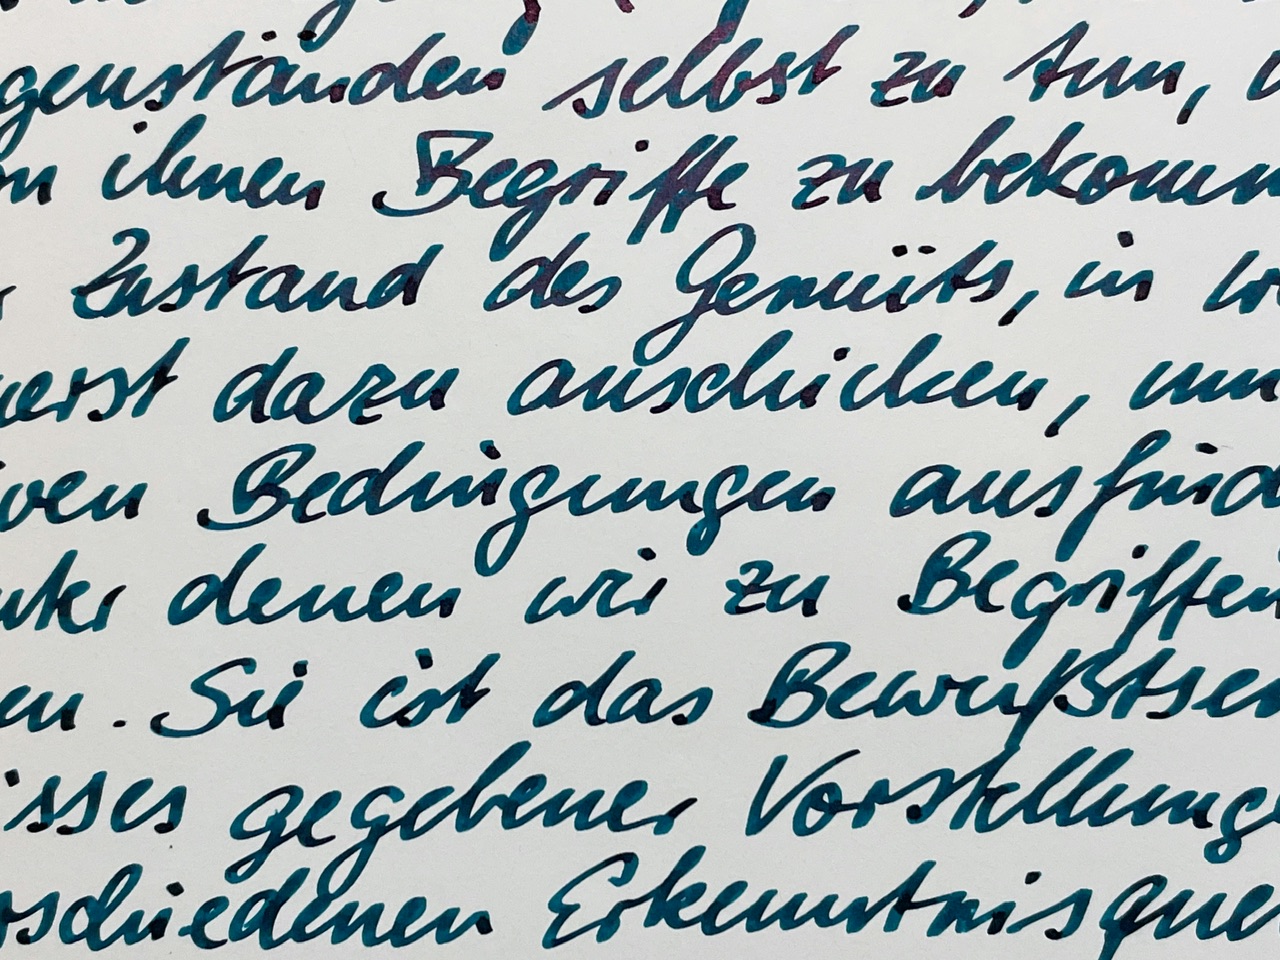 genständen selbst zu tun, u
on ihnen Begriffe zu bekomm
Zustand des Gemüts, in we
uerst dazu anschicken, um
iven Bedingungen ausfind
nter denen wir zu Begriffen
en. Sie ist das Bewußtsei
isses gegebener Vorstellunge
rschiedenen Erkenntnisquel